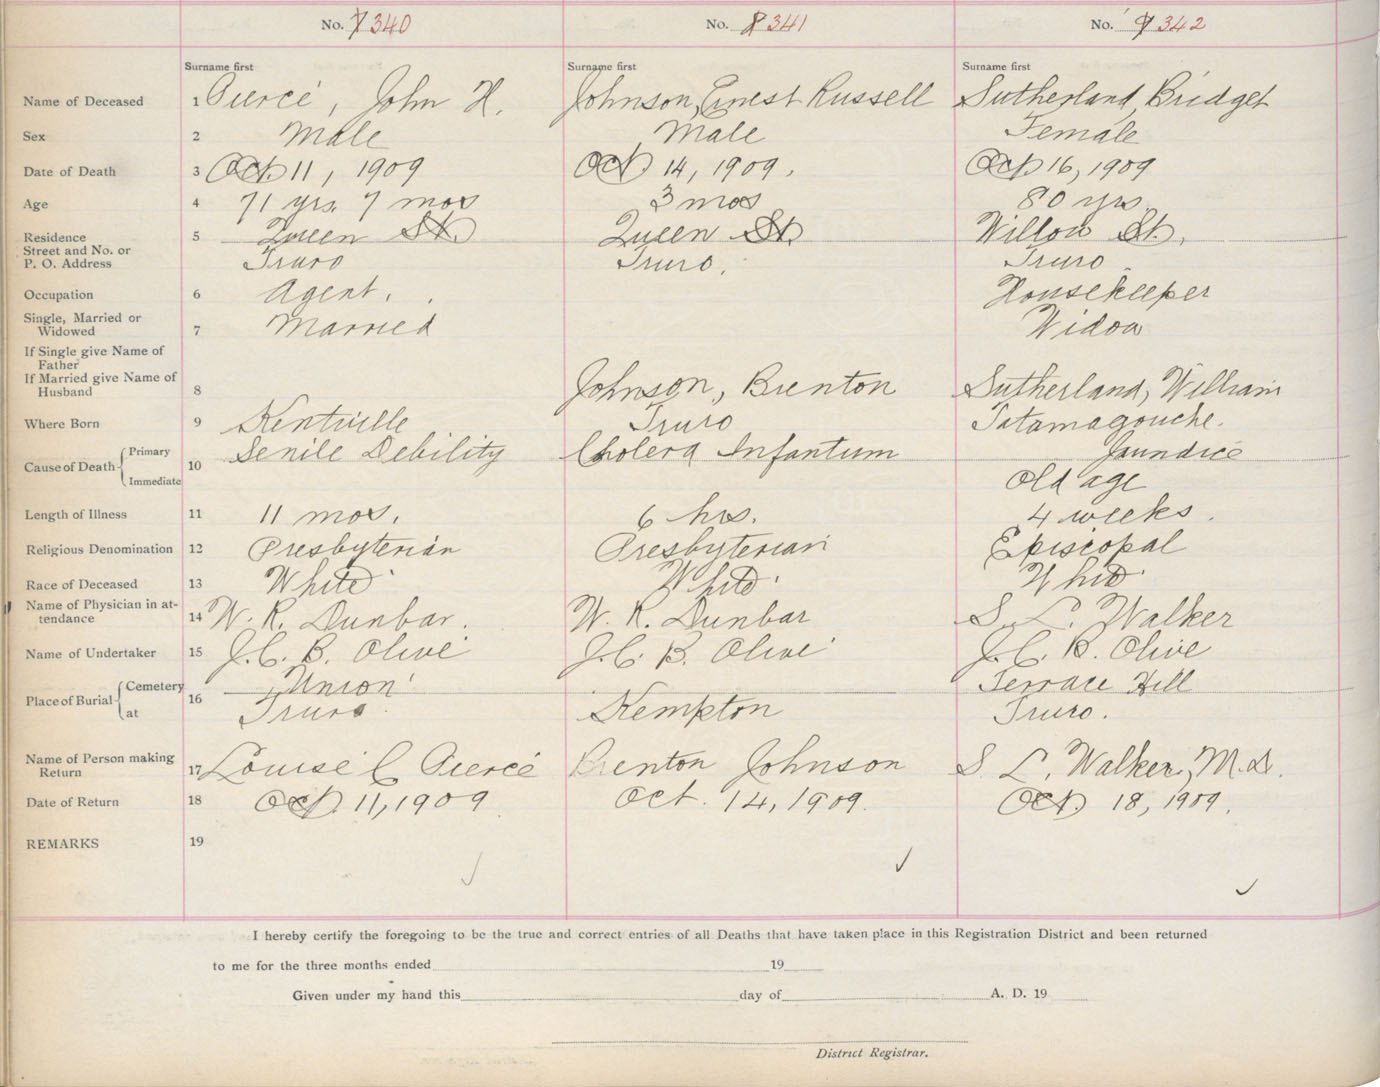 No. 7 340 No. 8 341 No. 9 342
Surname first Surname first Surname first
Name of Deceased 1 Pierce, John H. Johnson, Ernest Russell Sutherland, Bridget
Sex 2 Male Male Female
Date of Death 3 Oct. 11, 1909 Oct 14, 1909. Oct 16, 1909
Age 4 71 yrs. 7 mos 3 mos 80 yrs.
Residence 5 Queen St. Queen St. Willow St.
Street and No. or
P. O. Address Truro Truro. Truro.
Occupation 6 Agent. Housekeeper
Single, Married or
Widowed 7 Married Widow
If Single give Name of
Father
If Married give Name of
Husband 8 Johnson, Brenton Sutherland, William
Where Born 9 Kentville Truro Tatamagouche.
Cause of Death 10 Primary Senile Debility Cholera Infantum Jaundice
Immediate Old age
Length of Illness 11 11 mos. 6 hrs. 4 weeks.
Religious Denomination 12 Presbyterian Presbyterian Episcopal
Race of Deceased 13 White White Whit
Name of Physician in at-
tendance 14 W. R. Dunbar. W. R. Dunbar S. L. Walker
Name of Undertaker 15 J. C. B. Olive J. C. B. Olive J. C. B. Olive
Place of Burial 16 Cemetery Union Terrace Hill
at Truro Kempton Truro.
Name of Person making
Return 17 Louise C Pierce Brenton Johnson S. L. Walker, M.D.
Date of Return 18 Oct. 11, 1909 Oct. 14, 1909. Oct. 18, 1909.
REMARKS 19
I hereby certify the foregoing to be the true and correct entries of all Deaths that have taken place in this Registration District and been returned
to me for the three months ended 19
Given under my hand this day of A. D. 19
District Registrar.